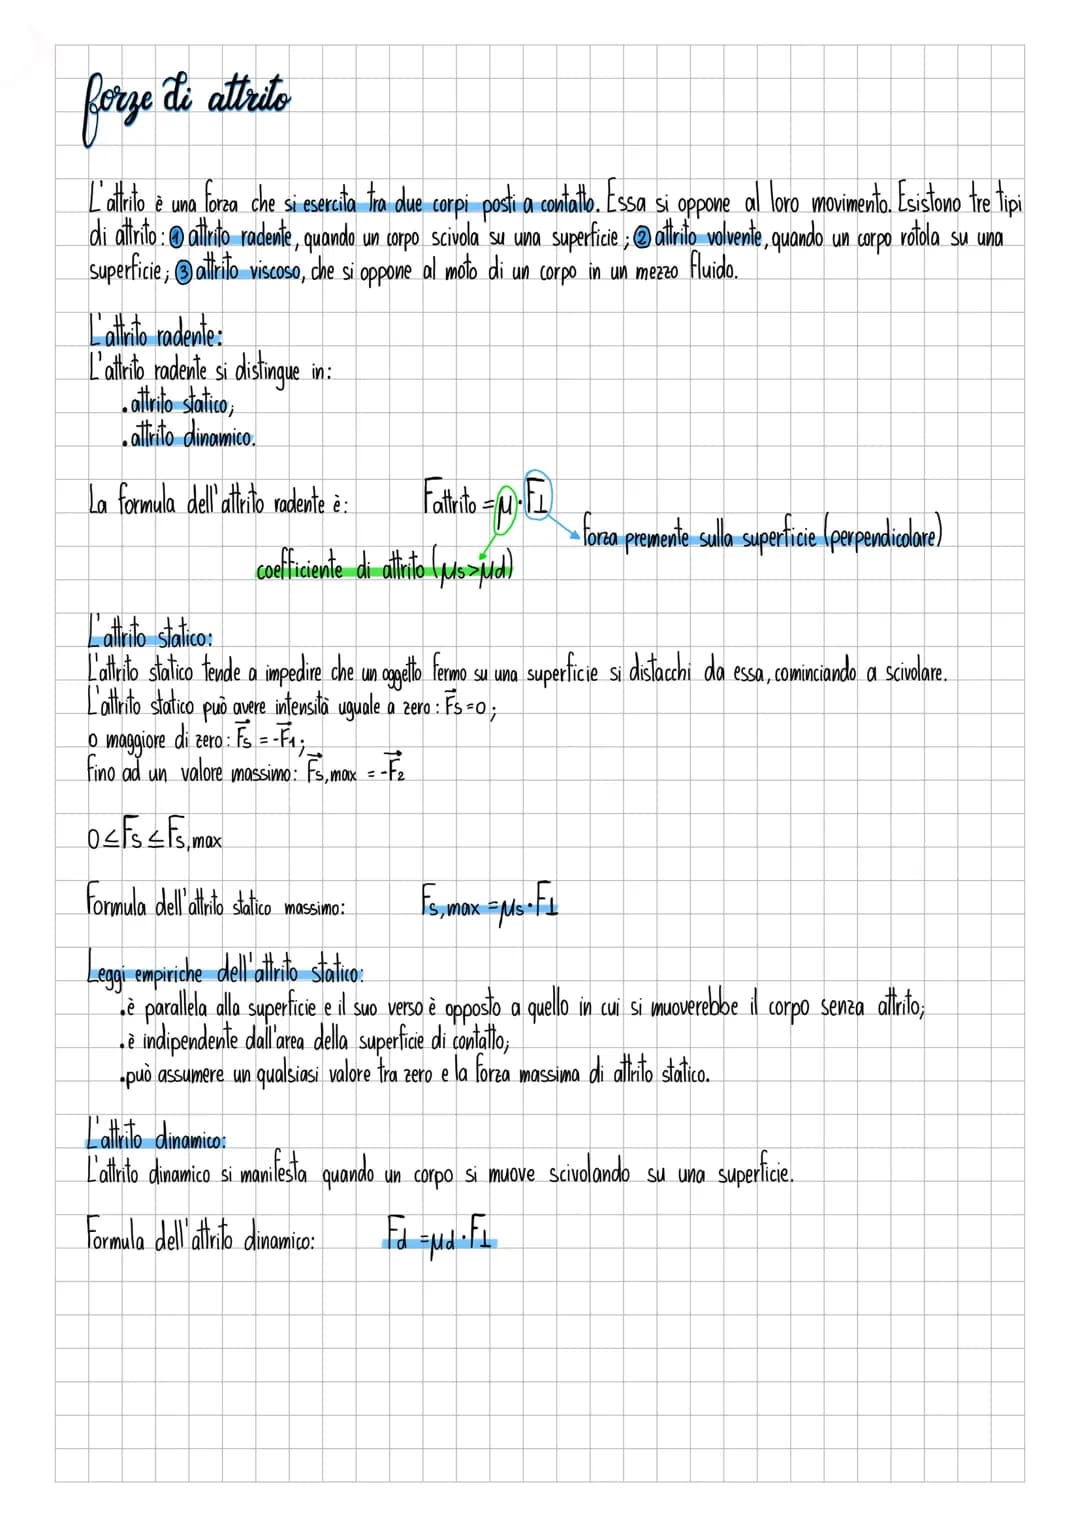 forze di attrito
L'attrito è una forza che si esercita tra due corpi posti a contatto. Essa si oppone al loro movimento. Esistono tre tipi
di attrito: ① attrito radente, quando un corpo scivola su una superficie; ② attrito volvente, quando un corpo rotola su una
superficie; ③ attrito viscoso, che si oppone al moto di un corpo in un mezzo fluido.
L'attrito radente:
L'attrito radente si distingue in:
. attrito statico;
. attrito dinamico.
La formula dell'attrito radente è: Fattrito = μ · F⊥
forza premente sulla superficie (perpendicolare)
coefficiente di attrito (μs>μd)
L'attrito statico:
L'attrito statico tende a impedire che un oggetto fermo su una superficie si distacchi da essa, cominciando a scivolare.
L'attrito statico può avere intensità uguale a zero: F⃗s =0;
o maggiore di zero: F⃗s = -F⃗1;
fino ad un valore massimo: F⃗s,max = -F⃗2
0≤Fs≤Fs,max
Formula dell'attrito statico massimo: Fs,max = μs · F⊥
Leggi empiriche dell'attrito statico:
. è parallela alla superficie e il suo verso è opposto a quello in cui si muoverebbe il corpo senza attrito;
. è indipendente dall'area della superficie di contatto;
. può assumere un qualsiasi valore tra zero e la forza massima di attrito statico.
L'attrito dinamico:
L'attrito dinamico si manifesta quando un corpo si muove scivolando su una superficie.
Formula dell'attrito dinamico: Fd = μd · F⊥